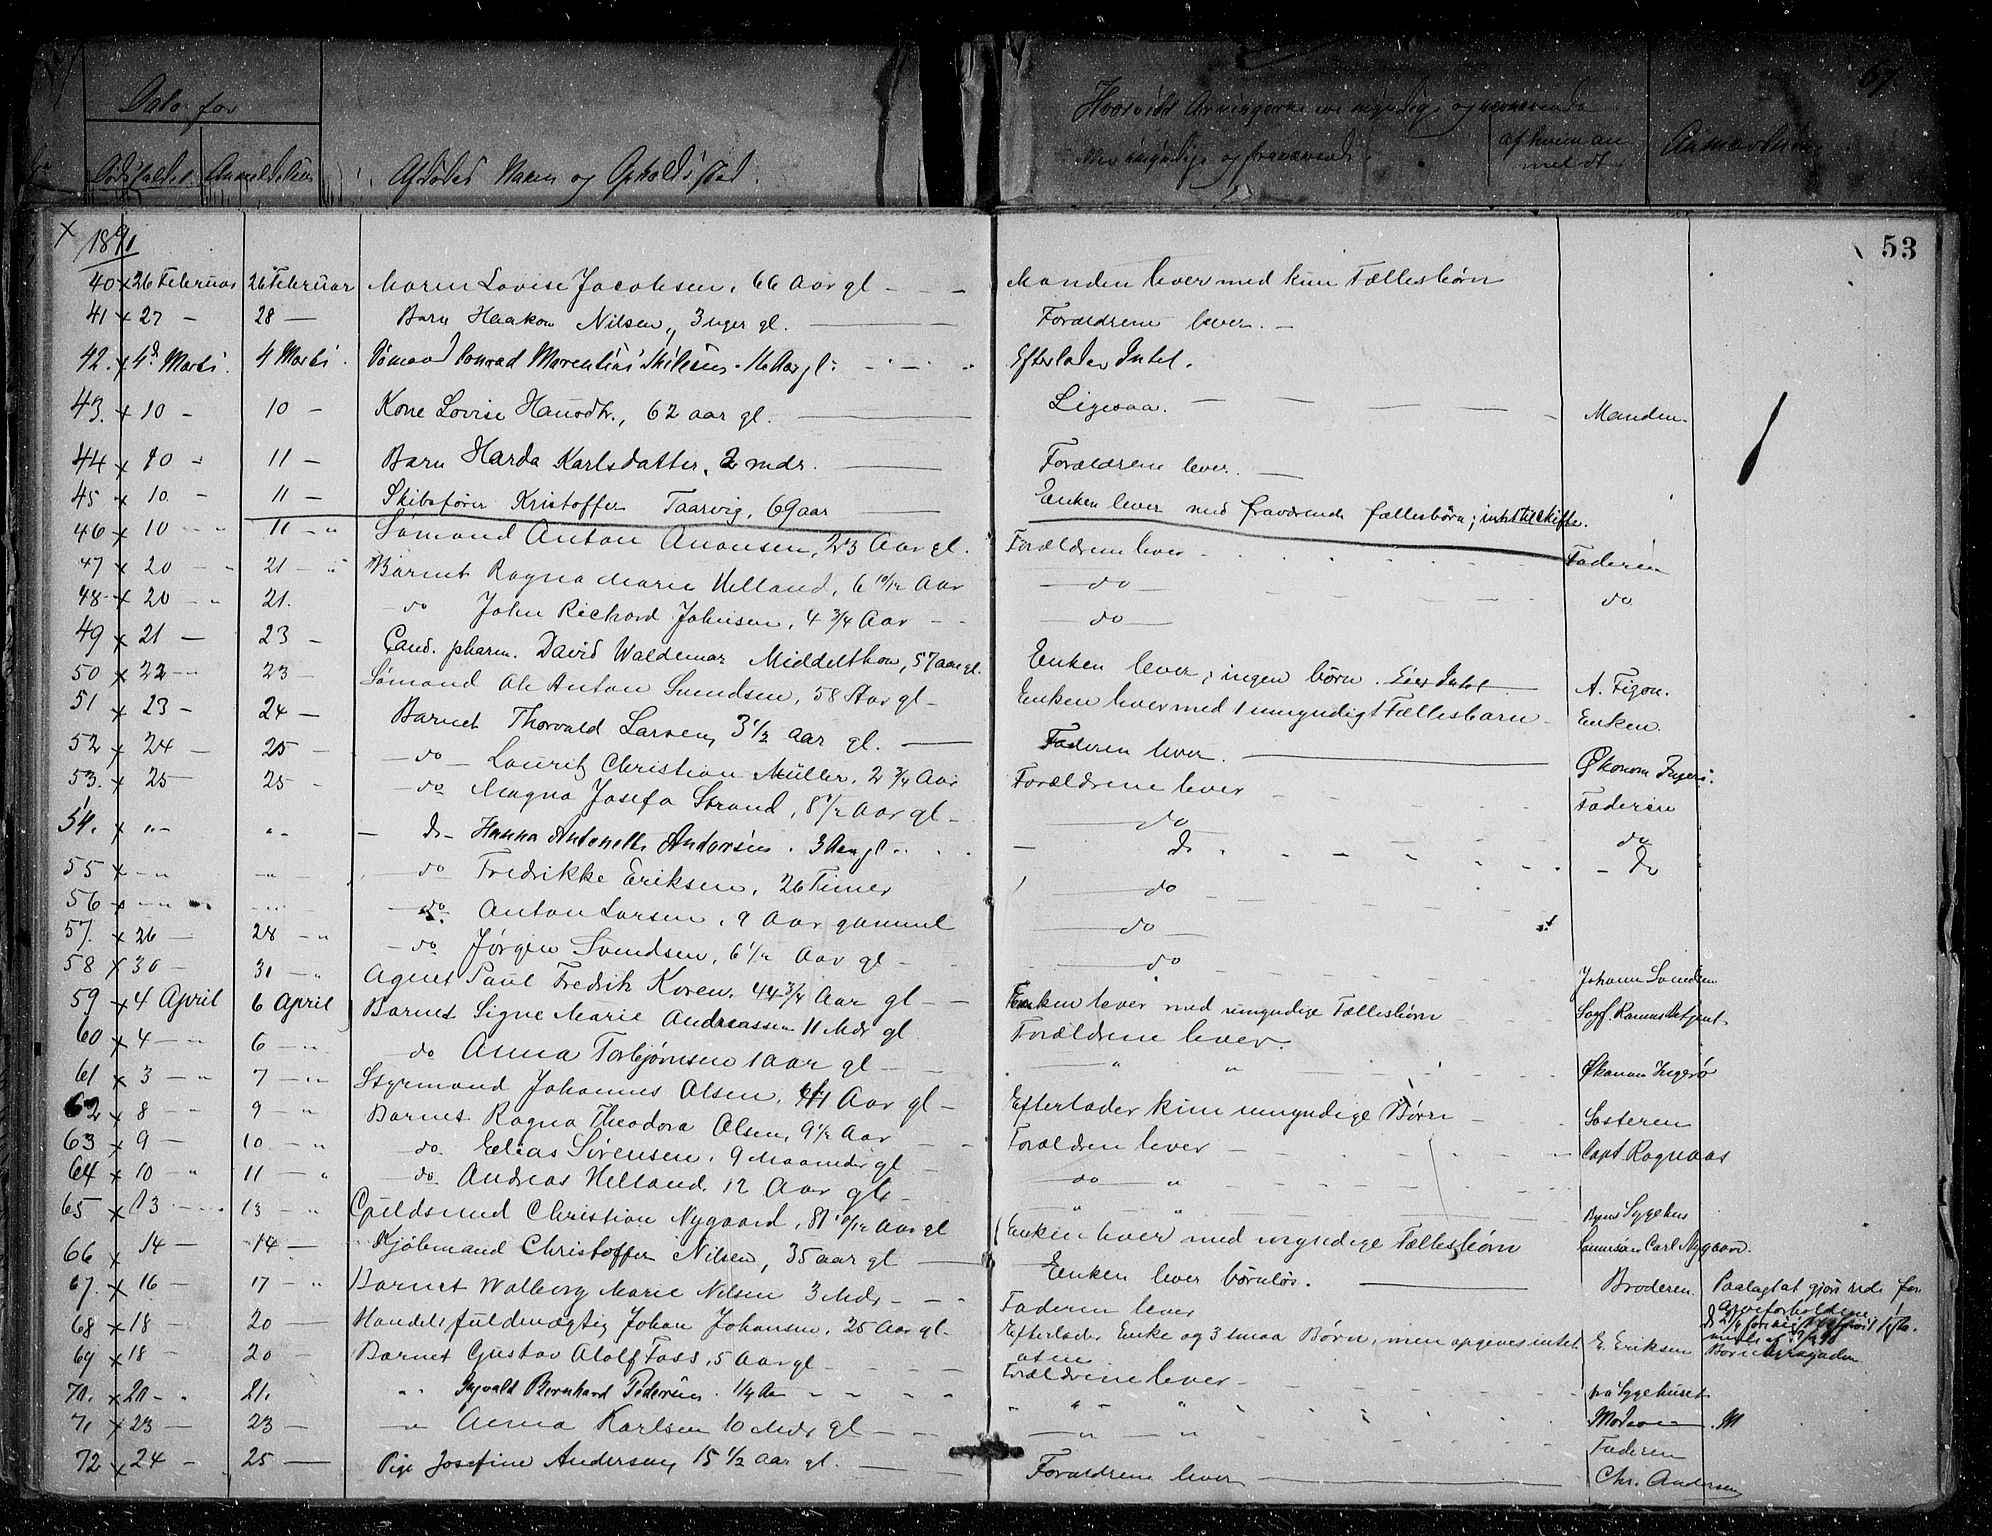 Dato for
Dødsfaldet Anmeldelsen
Afdødes Navn og Opholdssted
Hvorvidt Arvingerne ere myndige og nærværende
eller umyndige og fraværende.
af hvem anmeldt
Anmærkning
67
53
1891
40 x 26 Februar 26 Februar Maren Lovise Jacobsen, 66 Aar gl — Manden lever med kun Fællesbørn
41 x 27 — 28 — Barn Haakon Nilsen, 3 uger gl. — Forældrene lever. —
42. x 4d Marts. 4 Marts. Sømand Conrad Marentius gl. Efterlader Intet.
43. x 10 — 10 — Kone Lovise Hansdtr., 62 aar gl. — Ligesaa. — Manden.
44 x 10 — 11 — Barn Harda Karlsdatter, 2 mdr. — Forældrene lever. —
45 x 10 — 11 — Skibsfører Kristoffer Taarvig, 69 aar — Enken lever med fraværende fællesbørn; intet til skifte.
46 x 10 — 11 — Sømand Anton Aronsen, 23 Aar gl. Forældrene lever — Faderen
47 x 20 — 21 — Barnet Ragna Marie Helland, 6 10/12 Aar — do — do
48 x 20 — 21. — do John Richard Johnsen, 4 3/4 Aar — do —
49 x 21 — 23 — Cand. pharm. David Waldemar Middelthon, 57 aar gl. Enken lever; ingen børn. Eier Intet — A. Tigon.
50 x 22 — 23 — Sømand Ole Anton Svendsen, 58 Aar gl — Enken lever med 1 umyndigt Fællesbarn — Enken.
51 x 23 — 24 — Barnet Thorvald Larsen, 3 1/2 aar gl. — Faderen lever. — Økonom Ingerø.
52 x 24 — 25 — do — Lauritz Christian Müller, 2 3/4 Aar Forældrene lever — Faderen
53. x 25 — 25 — do Magna Josefa Strand, 8 1/2 Aar gl — do do
54. x " — " — do — Hanna Antonette Andersen. 3 Aar gl — do — do
55 x — " — — " — do — Fredrikke Eriksen, 26 Timer — do
56 x — " — — do Anton Larsen, 9 Aar gammel — do —
57. x 26 — 28 — " — do Jørgen Svendsen, 6 1/2 Aar gl — do Johann Svendsen
58 x 30 — 31 — " Agent Paul Fredrik Koren, 44 3/4 Aar gl — Enken lever med umyndige Fællesbørn
59 x 4 April 6 April Barnet Signe Marie Andreassen 11 Mdr gl Forældrene lever.
60 x 4 — " 6 — " do Anna Torbjørnsen 1 aar gl — " " Økonom Ingerø
61 x 3 — " 7 — " Styrmand Johannes Olsen, 41 Aar gl — Efterlader kun umyndige Børn — Søsteren
62 x 8 — " 9 — " Barnet Ragna Theodora Olsen, 9 1/2 Aar — Forældrene lever — Capt Rognaas
63 x 9 — 10 — " do Elias Sørensen, 9 Maaneder gl — do "
64 x 10 — " 11 — " do Andreas Helland, 12 Aar gl — " " Byens Sygehus
65 x 13 13 — " Guldsmed Christian Nygaard, 81 10/12 Aar gl Enken lever med myndige Fællesbørn Sønnesøn Carl Nygaard.
66 x 14 — 14 — Kjøbmand Christoffer Nilsen, 35 aar gl — Enken lever børnløs. — Broderen. Paalagt at gjøre rede for
67. x 16 — 17 — " Barnet Walborg Marie Nilsen 3 Mdr — Faderen lever arveforholdene
68 x 18 — 20 — Handelsfuldmægtig Johan Johansen, 25 Aar gl. Efterlader Enke og 3 smaa Børn, men opgives intet E. Eriksen
69 x 18 — 20 — Barnet Gustav Adolf Foss, 5 Aar gl — Forældrene lever —
70. x 20 — 21. " Ingvald Bernhard Pedersen. 1/4 Aar — " " fra Sygehuset
71 x 23 — 23 — " Anna Karlsen 10 Mdr gl — " — " Moderen M
72 x 24 — 25 — Pige Josefine Andersen, 15 1/2 aar gl. — Forældrene lever — Faderen
Chr. Andersen